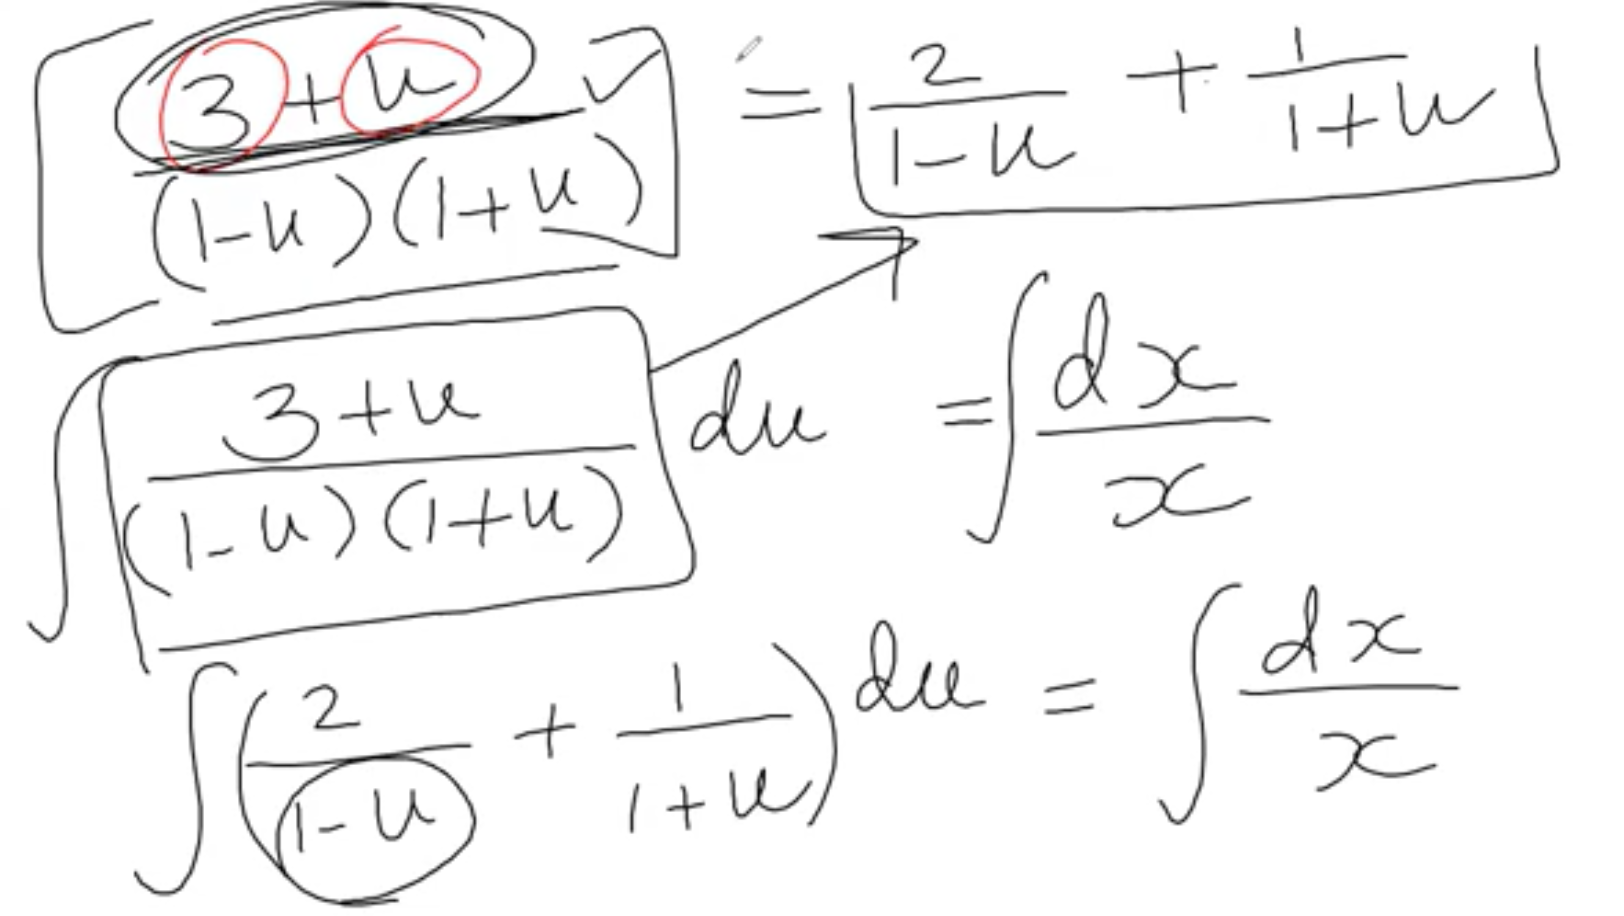 (3+u)/((1-u)(1+u)) = 2/(1-u) + 1/(1+u)
∫ (3+u)/((1-u)(1+u)) du = ∫ dx/x
∫ (2/(1-u) + 1/(1+u)) du = ∫ dx/x